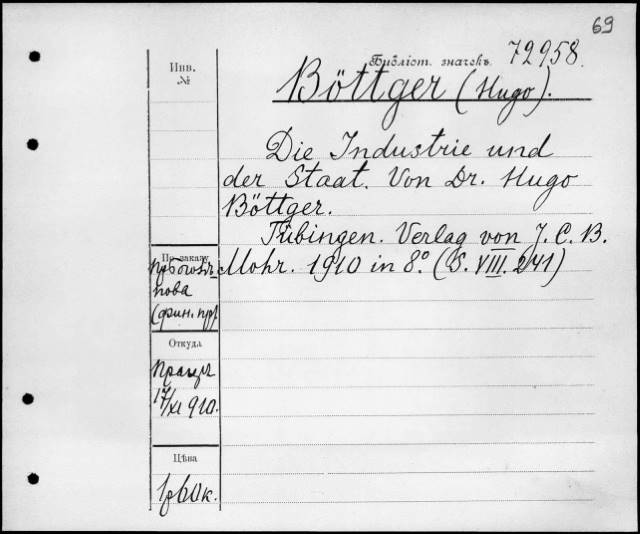 69
Библіот. значекъ 72958.
Инв.
№
Böttger (Hugo).
Die Industrie und
der Staat. Von Dr. Hugo
Böttger.
Tübingen. Verlag von J. C. B.
Mohr. 1910 in 8.° (S. VIII. 241)
По заказу
пова
(фин. пр)
Откуда
17/XI 910.
Цѣна
1р60к.